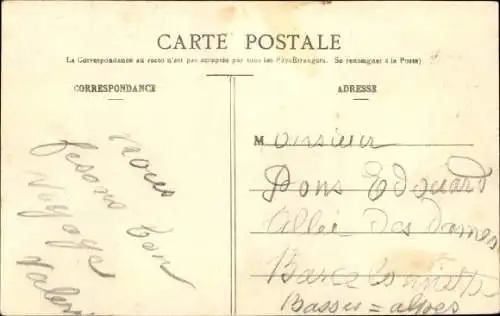 CARTE POSTALE
La Correspondance au recto n'est pas acceptée par tous les Pays Etrangers. Se renseigner à la Poste)
CORRESPONDANCE
ADRESSE
nous
fesons bon
voyage
Monsieur
Pons Edouard
Allée des Dames
Barcelonnette
Basses = alpes